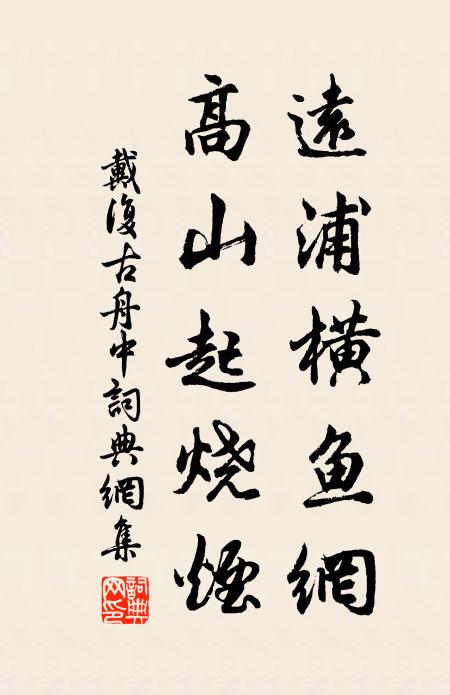 遠浦橫鱼網
高山起烧煙
戴復古舟中詞典網集
詞典網印